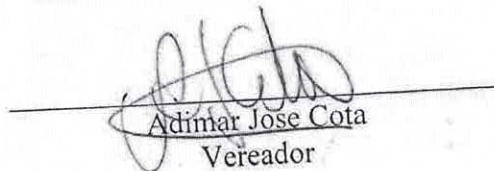 Adimar Jose Cota
Vereador